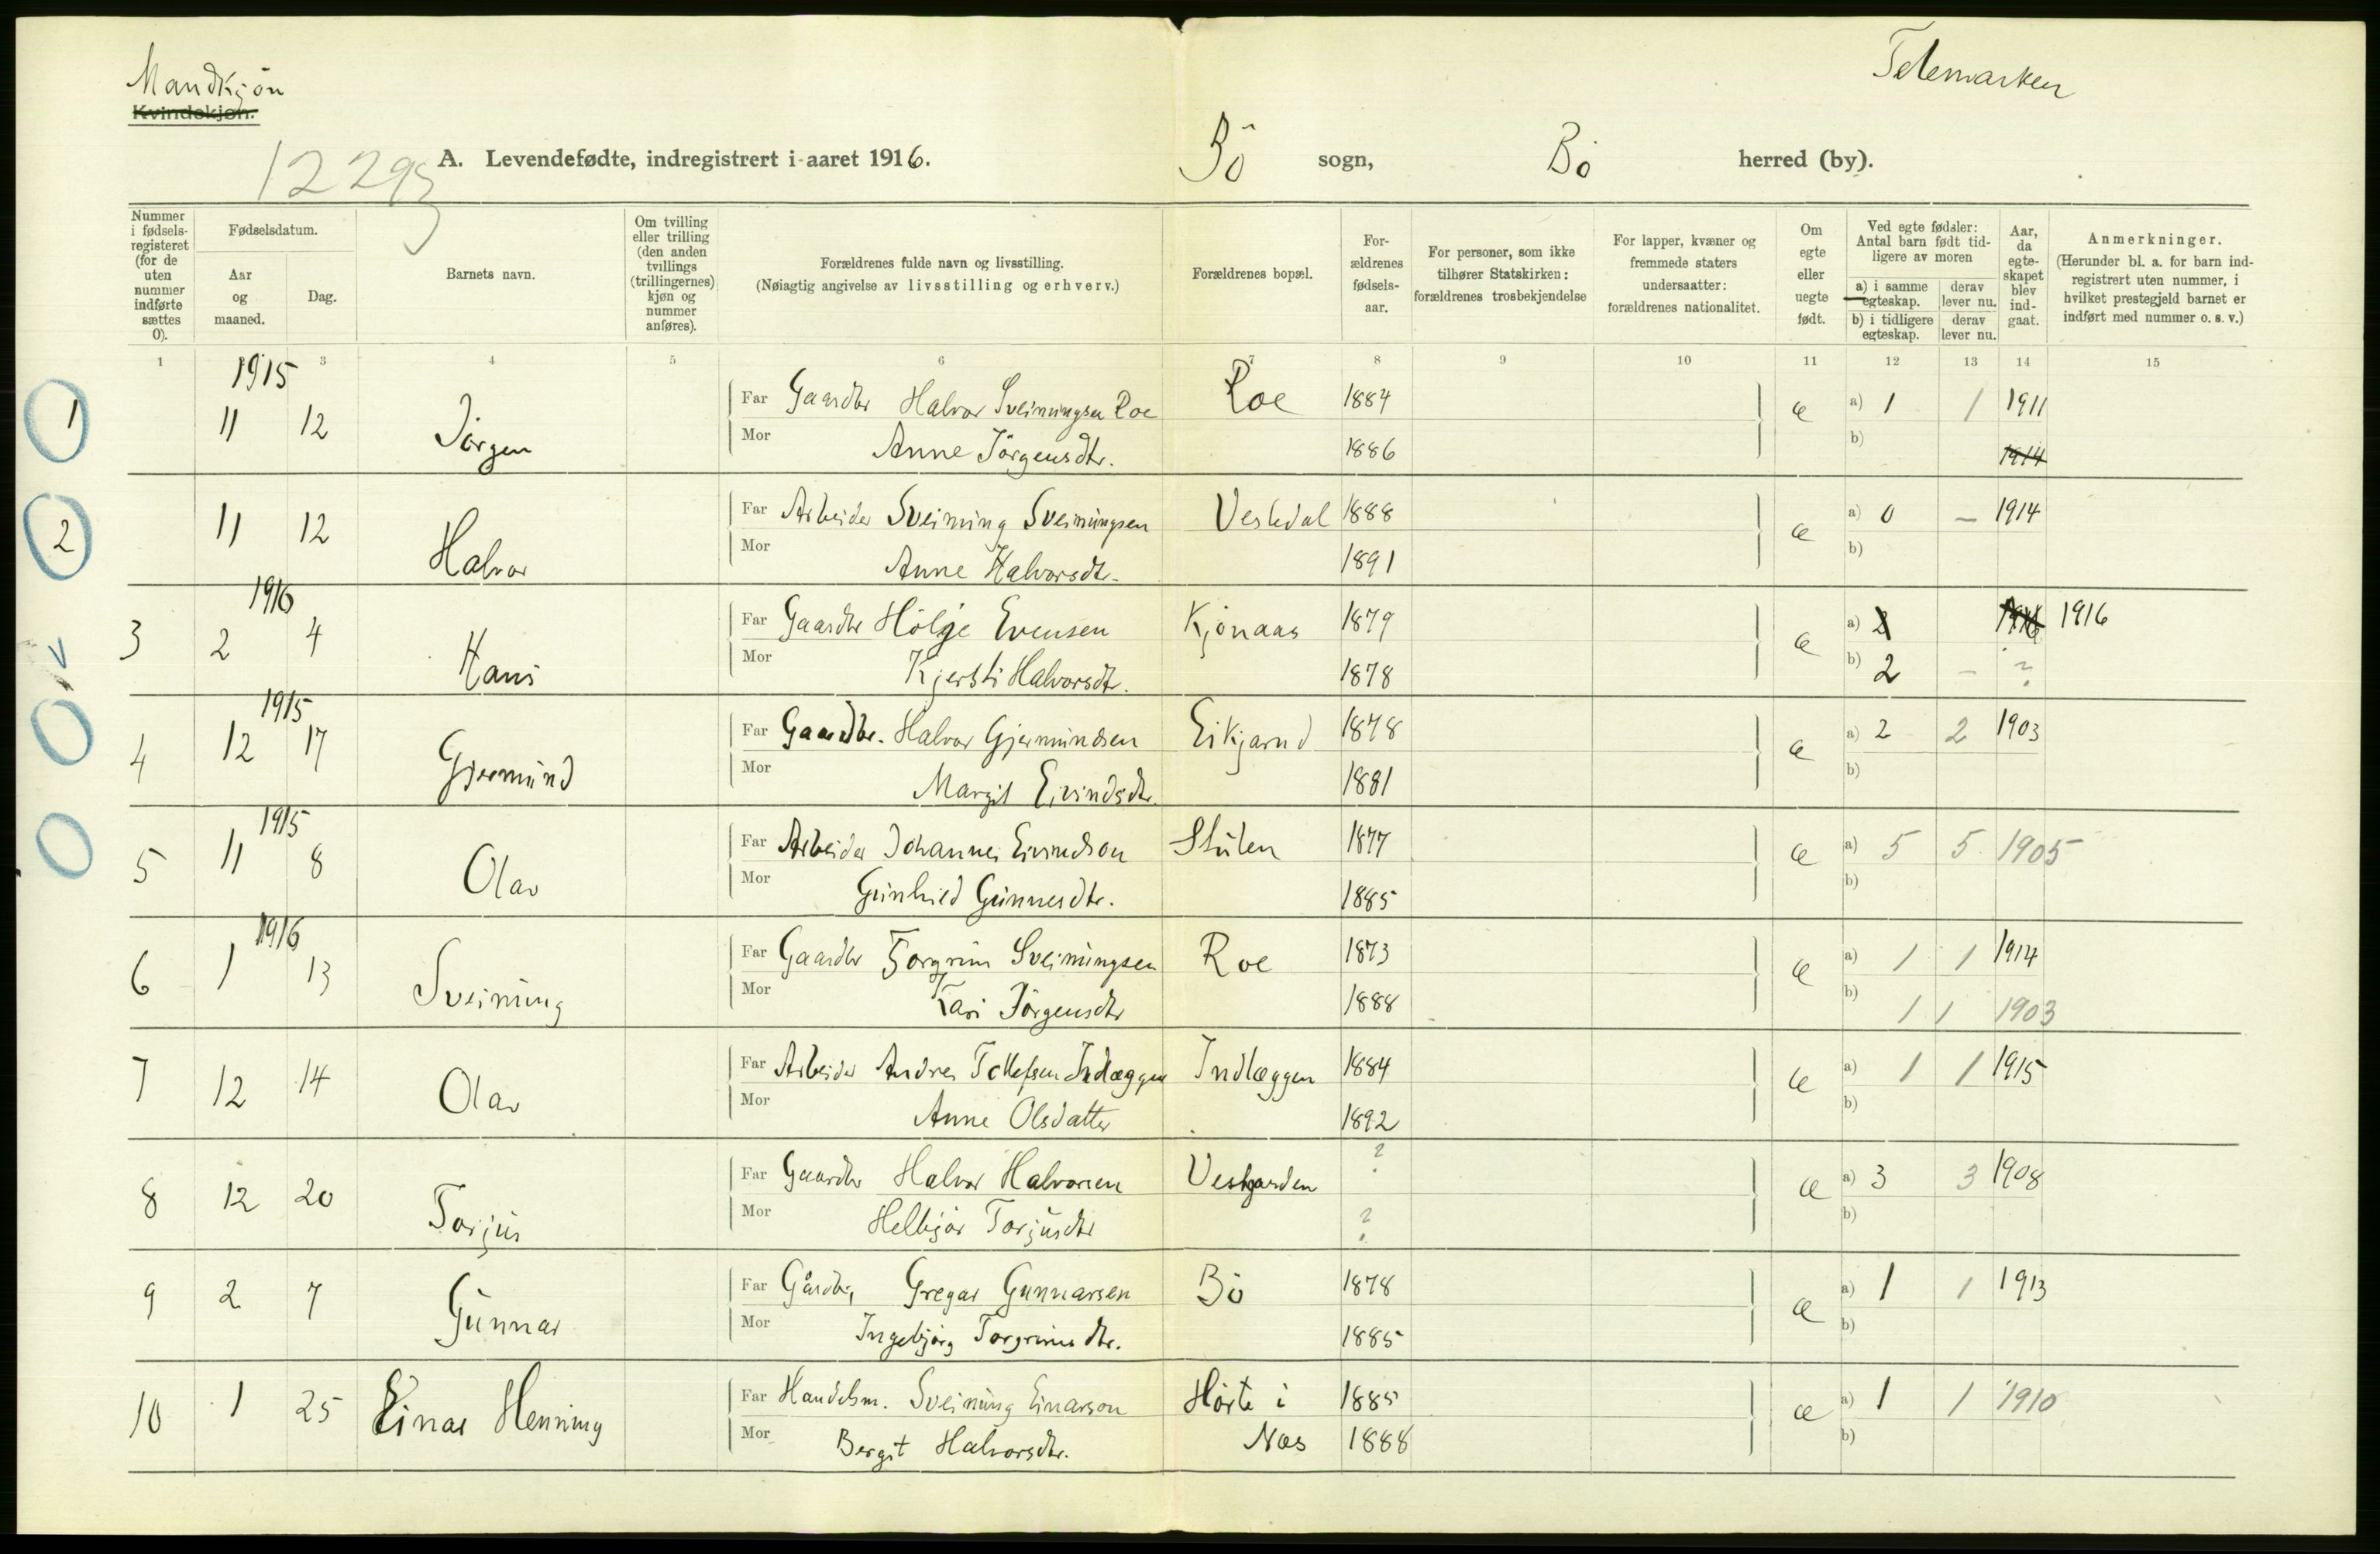 Mandkjøn
Telemarken
Kvindekjøn.
12293
A. Levendefødte, indregistrert i aaret 1916. Bö sogn, Bö herred (by).
Nummer i fødselsregisteret (for de uten nummer indførte sættes 0).
Fødselsdatum.
Aar og maaned.
Dag.
Barnets navn.
Om tvilling eller trilling (den anden tvillings (trillingernes) kjøn og nummer anføres).
Forældrenes fulde navn og livsstilling.
(Nøiagtig angivelse av livsstilling og erhverv.)
Forældrenes bopæl.
Forældrenes fødselsaar.
For personer, som ikke tilhører Statskirken: forældrenes trosbekjendelse
For lapper, kvæner og fremmede staters undersaatter: forældrenes nationalitet.
Om egte eller uegte født.
Ved egte fødsler: Antal barn født tidligere av moren
a) i samme egteskap.
derav lever nu.
b) i tidligere egteskap.
derav lever nu.
Aar, da egteskapet blev indgaat.
Anmerkninger.
(Herunder bl. a. for barn indregistrert uten nummer, i hvilket prestegjeld barnet er indført med nummer o. s. v.)
1 3 4 5 6 7 8 9 10 11 12 13 14 15
1915
1 11 12 Jörgen Far Gaardbr Halvor Sveinungsen Roe Roe 1884 e a) 1 1 1911
Mor Anne Jörgensdtr. 1886 b) 1914
2 11 12 Halvor Far Arbeider Sveinung Sveinungsen Vesledal 1888 e a) 0 – 1914
Mor Anne Halvorsdtr. 1891 b)
1916
3 2 4 Hans Far Gaardbr Hölje Evensen Kjönaas 1879 e a) 2 1916 1916
Mor Kjersti Halvorsdtr. 1878 b) 2 – ?
1915
4 12 17 Gjermund Far Gaardbr. Halvor Gjermundsen Eikjarud 1878 e a) 2 2 1903
Mor Margit Eivindsdtr. 1881 b)
1915
5 11 8 Olav Far Arbeider Johannes Eivindson 1877 e a) 5 5 1905
Mor Gunhild Gunnesdtr. 1885 b)
1916
6 1 13 Sveinung Far Gaardbr Torgrim Sveinungsen Roe 1873 e a) 1 1 1914
Mor Kari Jörgensdtr 1888 b) 1 1 1903
7 12 14 Olav Far Arbeider Andres Tollefsen Indlæggen Indlæggen 1884 e a) 1 1 1915
Mor Anne Olsdatter 1892 b)
8 12 20 Torjus Far Gaardbr Halvor Halvorsen Vestgarden ? e a) 3 3 1908
Mor Helbjör Torjusdtr ? b)
9 2 7 Gunnar Far Gårdbr, Gregar Gunnarsen Bö 1878 e a) 1 1 1913
Mor Ingebjörg Torgrimsdtr. 1885 b)
10 1 25 Einar Henning Far Handelsm. Sveinung Einarson Hörte i 1885 e a) 1 1 1910
Mor Bergit Halvorsdtr. Nes 1888 b)